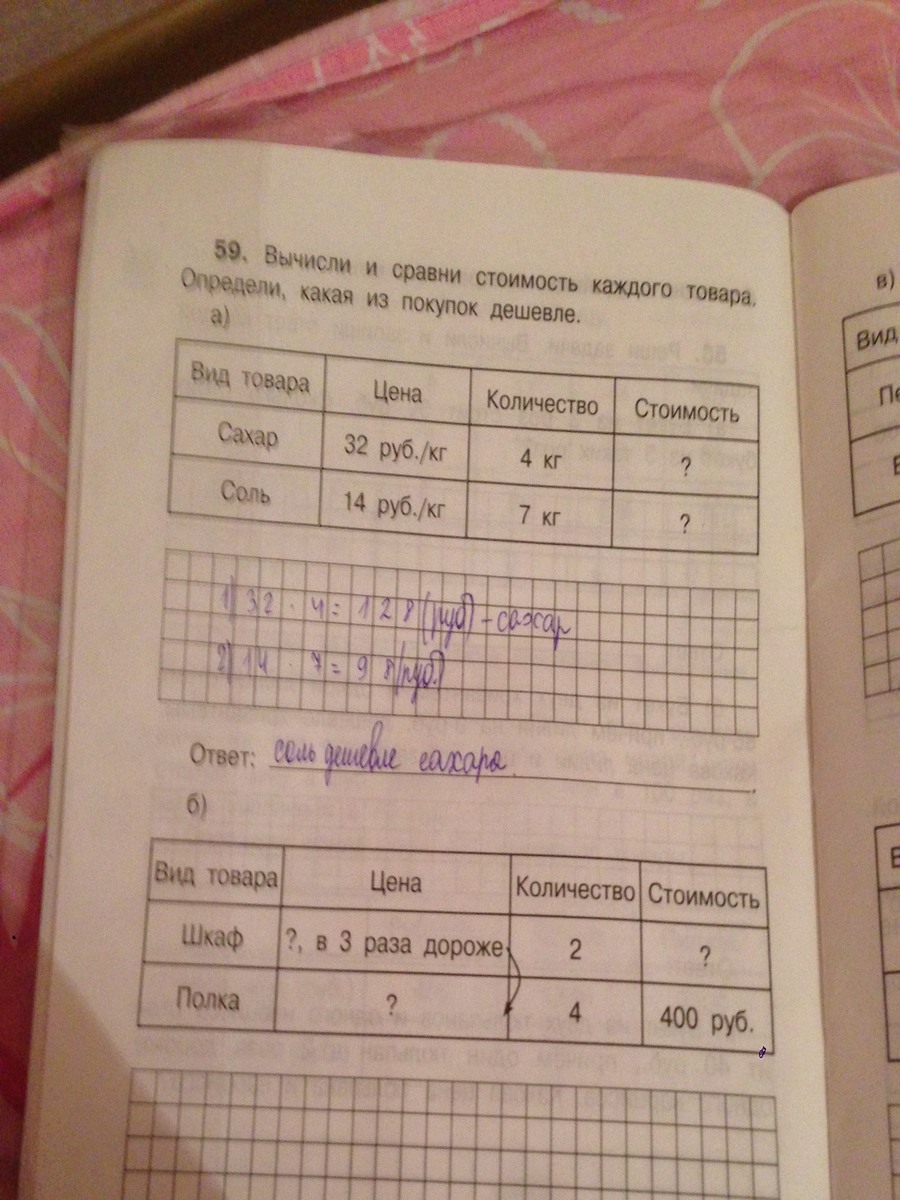 59. Вычисли и сравни стоимость каждого товара.
Определи, какая из покупок дешевле.
а)
Вид товара Цена Количество Стоимость
Сахар 32 руб./кг 4 кг ?
Соль 14 руб./кг 7 кг ?
1) 32 · 4 = 128 (руб) - сахар
2) 14 · 7 = 98 (руб.)
Ответ: соль дешевле сахара.
б)
Вид товара Цена Количество Стоимость
Шкаф ?, в 3 раза дороже 2 ?
Полка ? 4 400 руб.
в)
Вид